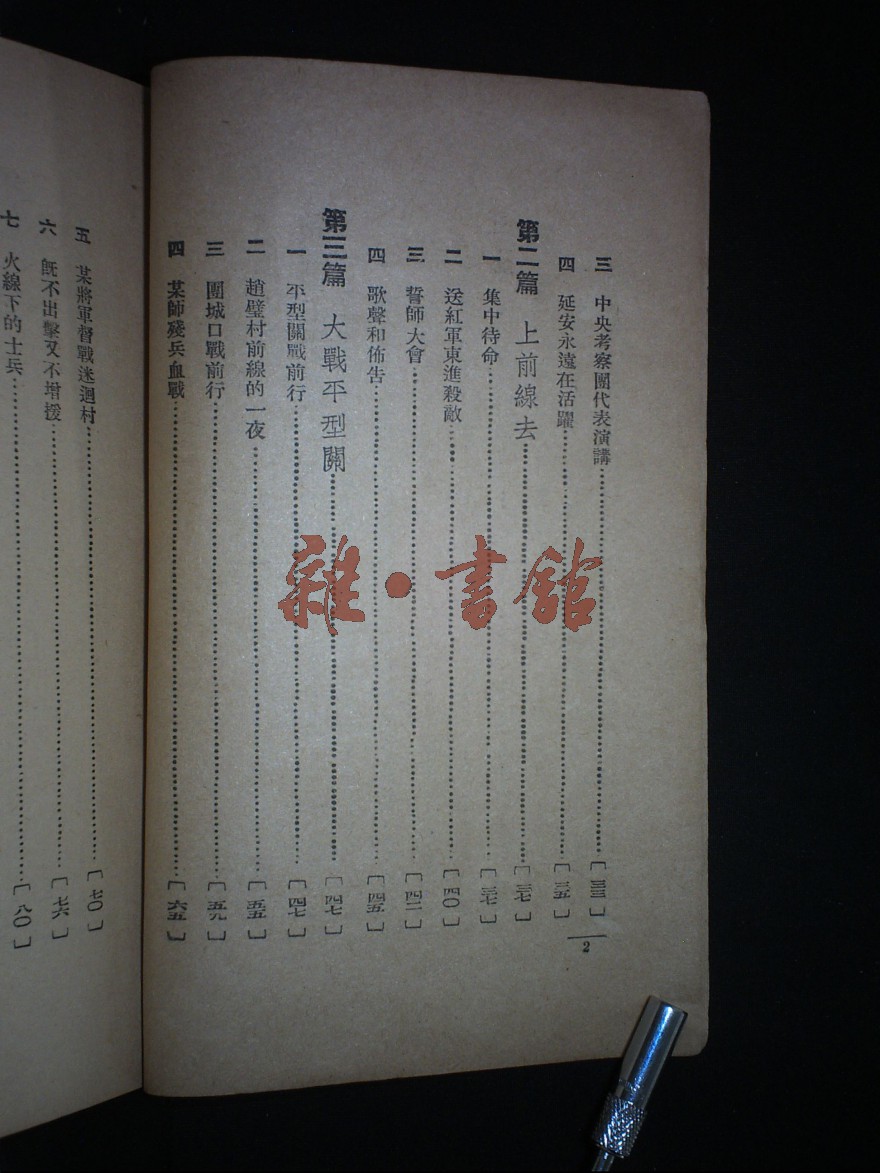 三 中央考察團代表演講……〔三三〕
四 延安永遠在活躍……〔三五〕
第二篇 上前線去……〔三七〕
一 集中待命……〔三七〕
二 送紅軍東進殺敵……〔四〇〕
三 誓師大會……〔四二〕
四 歌聲和佈告……〔四五〕
第三篇 大戰平型關……〔四七〕
一 平型關戰前行……〔四七〕
二 趙璧村前線的一夜……〔五五〕
三 團城口戰前行……〔五九〕
四 某師殘兵血戰……〔六五〕
2
五 某將軍督戰迷迴村……〔七〇〕
六 既不出擊又不增援……〔七六〕
七 火線下的士兵……〔八〇〕
雜·書館